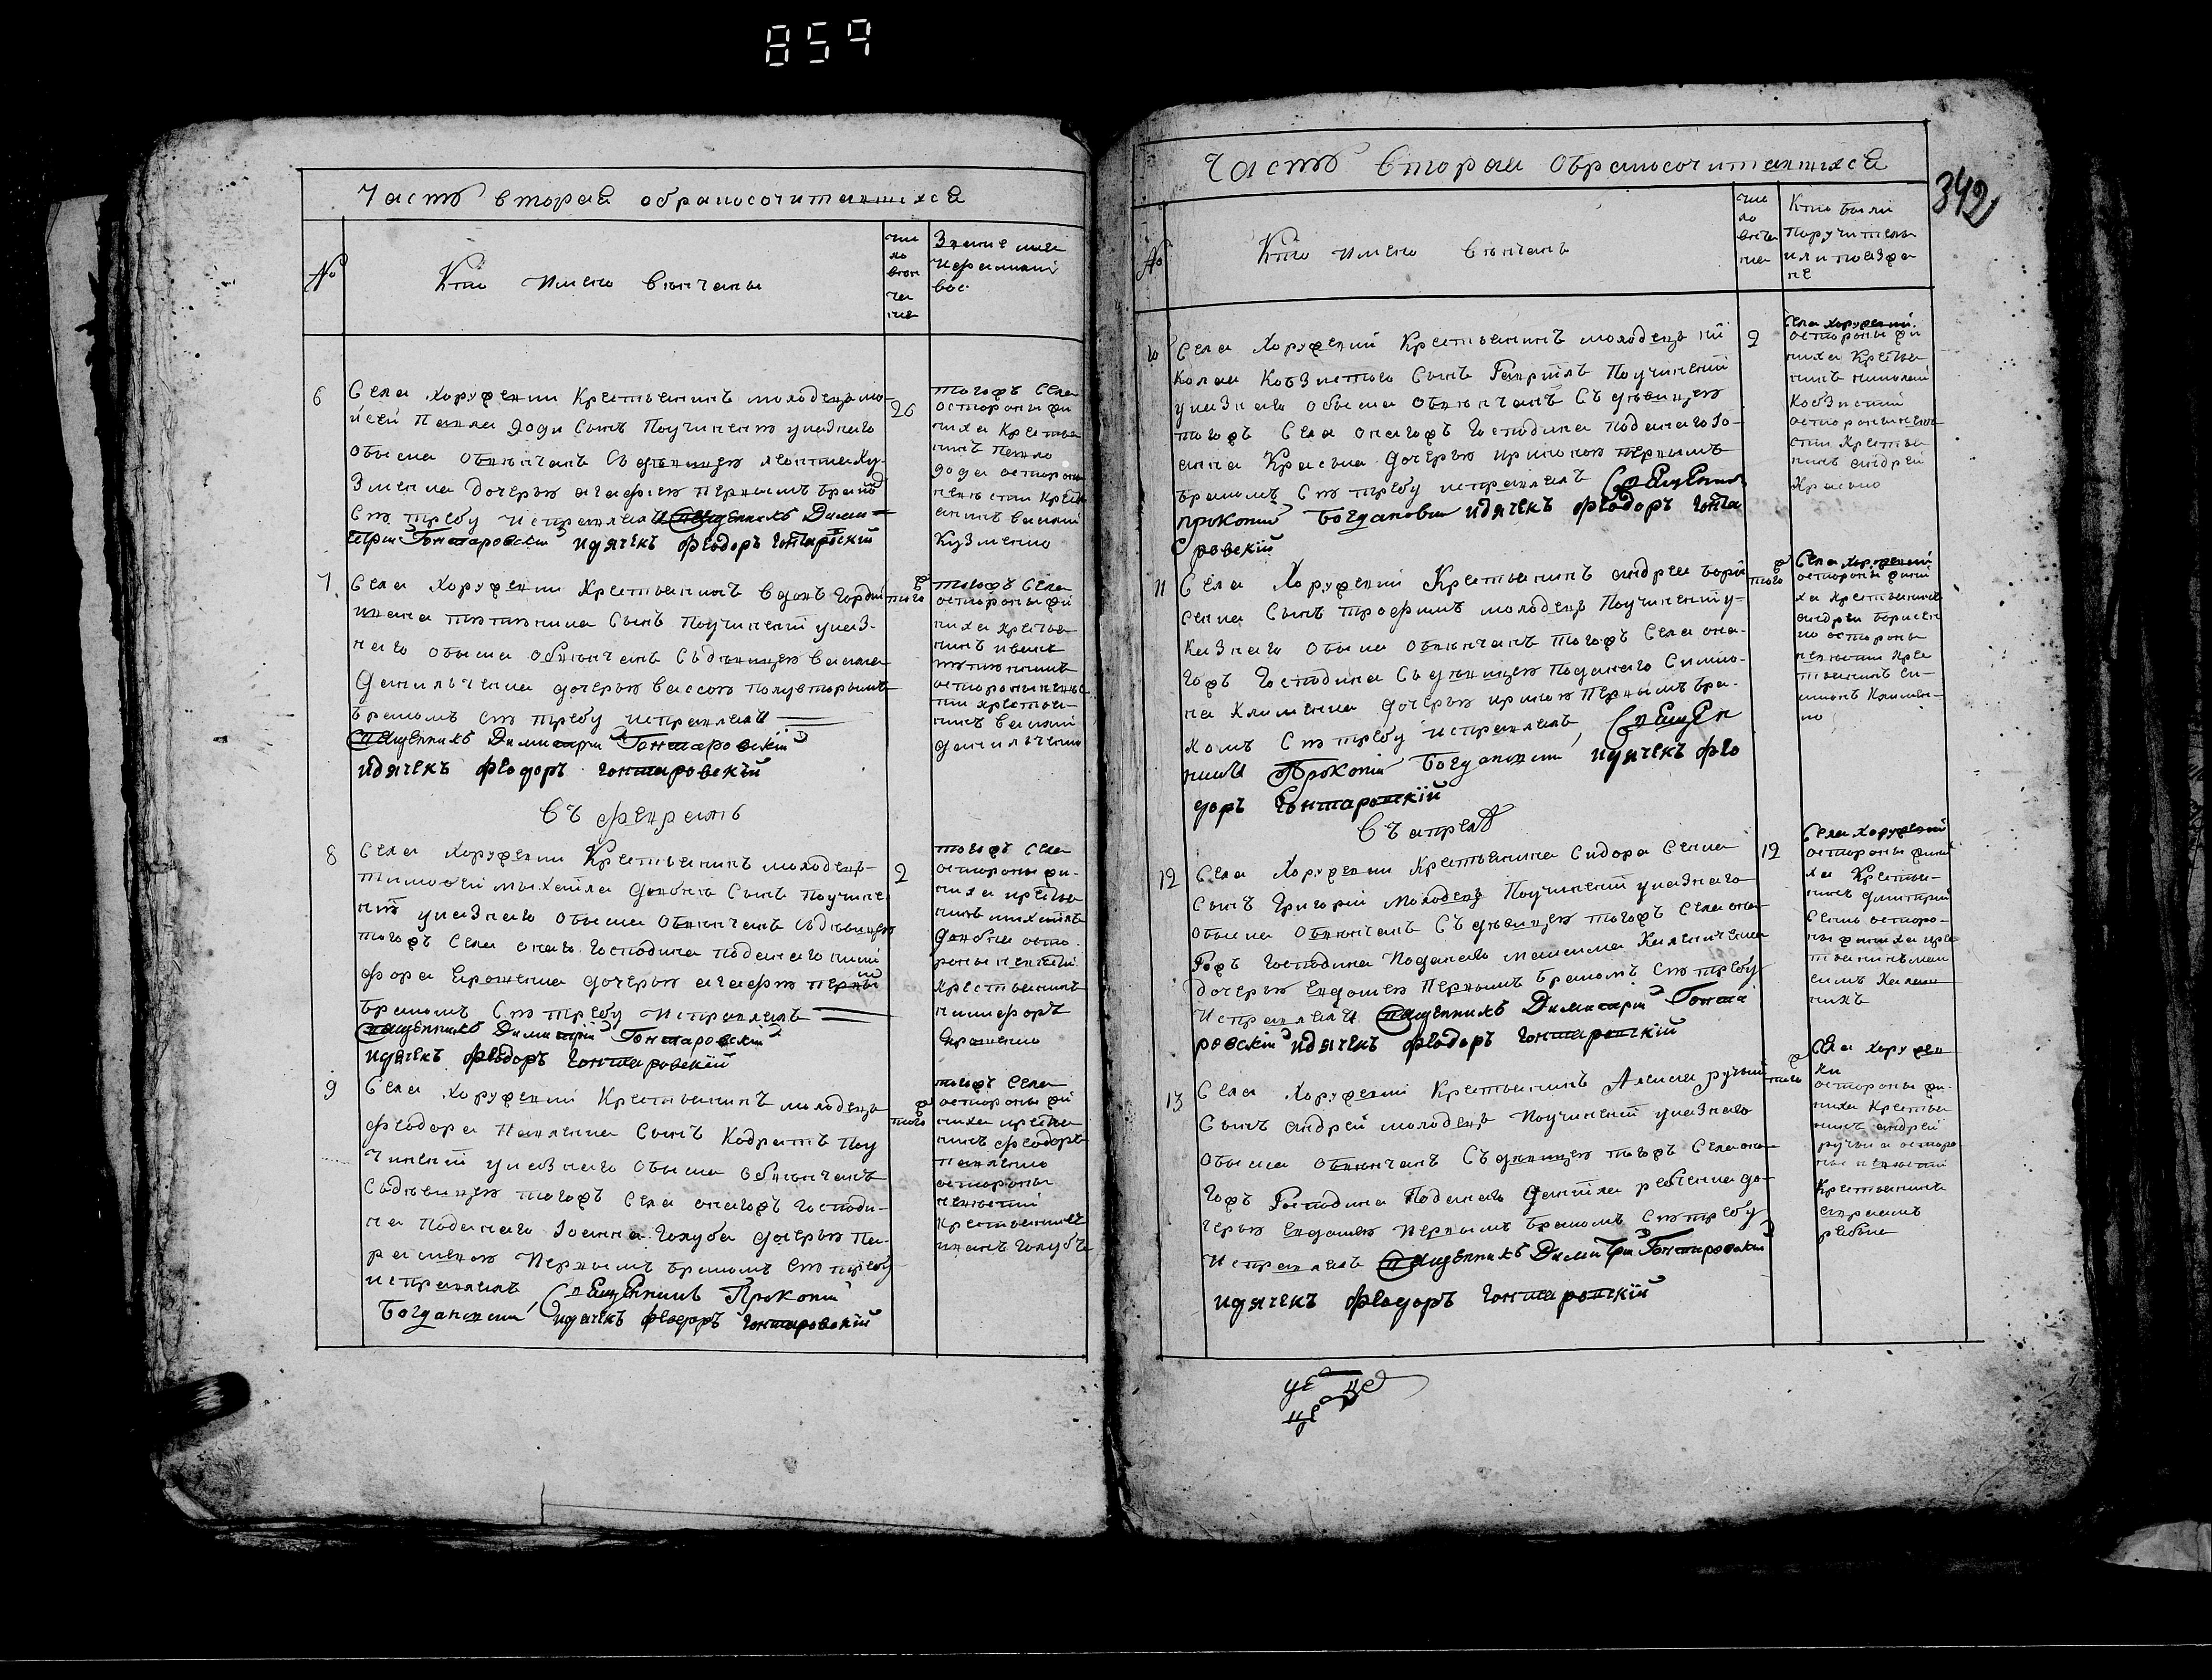 859
Часть вторая обракосочитавшихся
№
Кто имено венчаны
чи
ло
венч
ча
ние
Звание
6
Села Хоружевки Крестьянинъ молодецъ мо-
исей Павла Доди Сынъ Поучинении указнаго
обыска обвѣнчанъ Съ дѣвицею
дочерью агафиею первымъ бракомъ
Сию требу исправлялъ Священникъ Дими-
трий Гонтаровский идячекъ Феодоръ Гонтаровский
26
тогожъ Села
остороны же
ниха Крестья
нинъ Павло
дода осторон
невѣсти Крест
янинъ василий
Кузменко
7
Села Хоружевки Крестьянинъ вдовъ
ивана Сынъ Поучинений указ-
наго обыска обвѣнчанъ Съдѣвицею василя
Данильченка дочерью вассою полувторымъ
бракомъ Сию требу исправлялъ
Священникъ Димитрий Гонтаровский
идячекъ Феодоръ Гонтаровский
тогожъ
тогожъ Села
остороны же
ниха крестья
нинъ иванъ
остороны невѣс
ти крестья-
нинъ василий
данильченко
Въ февралѣ
8
Села Хоружевки Крестьянинъ молодецъ
тимофей михайла Сынъ поучине
ний указнаго обыска обвѣнчанъ Съдѣвицею
тогожъ Села онаго Господина поданаго ники
фора Ярошенка дочерью агафию первы
бракомъ Сию требу исправлялъ
Священникъ Димитрий Гонтаровский
идячекъ Феодоръ Гонтаровский
2
тогожъ Села
остороны же-
ниха крестья
нинъ михайло
осто
роны невѣсти
Крестьянинъ
никифоръ
Ярошенко
9
Села Хоружевки Крестьянинъ молодецъ
Феодора Павленка Сынъ Кодратъ Поу
чинений указнаго обыска обвѣнчанъ
Съдѣвицею тогожъ Села онагожъ Господи-
на Поданаго Иоанна Голуба дочерью Па-
раскевою Первымъ бракомъ Сию требу
исправлялъ Священникъ Прокопий
Богдановский идячекъ Феодоръ Гонтаровский
тогожъ
тогожъ Села
остороны же
ниха крестья
нинъ феодоръ
павленко
остороны
невѣсти
Крестьянинъ
иванъ Голубъ
Часть вторая обракосочитавшихся
342
№
Кто имено вѣнчанъ
чис
ло
вѣнча
ния
Кто были
Поручители
или поезжа
не
10
Села Хоружевки Крестьянинъ молодецъ ни
колая Козиетого Сынъ Гавриилъ Поучинений
указнаго обыска обвѣнчанъ Съ дѣвицею
тогожъ Села онагожъ Господина поданаго Ио-
анна Красъка дочерью ириною первымъ
бракомъ Сию требу исправлялъ Священникъ
прокопий Богдановский идячекъ Феодоръ Гонта
ровский
2
Села Хоружевки
остороны же
ниха Крестья
нинъ николай
остороны невѣ
сти Крестья
нинъ андрей
Красько
11
Села Хоружевки Крестьянинъ андрея бори
сенка Сынъ трофимъ молодецъ Поучинений у-
казнаго обыска обвѣнчанъ тогожъ Села она-
гожъ Господина Съ дѣвицею Поданаго Симио-
на Клименка дочерью ириною Первымъ бра-
комъ Сию требу исправлялъ Священ
никъ Прокопий Богдановский идячекъ Фео
доръ Гонтаровский
тогожъ
Села Хоружевки
остороны жени
ха крестьянинъ
андрей борисен
ко остороны
невѣсти кре
стьянинъ си-
мионъ Климен-
ко
Въ апрелѣ
12
Села Хоружевки Крестьянина Сидора Сенка
Сынъ Григорий молодецъ Поучинений указнаго
обыска обвѣнчанъ Съ дѣвицею тогожъ Села она-
гожъ Господина Поданаго максима Калениченка
дочерью Евдокиею Первымъ бракомъ Сию требу
исправлялъ Священникъ Димитрий Гонта
ровский идячекъ Феодоръ Гонтаровский
12
Села Хоружевки
остороны жени
ха Крестья-
нинъ Димитрий
Сенко осторо-
ны жениха кре
стьянинъ мак
симъ Кален
никъ
13
Села Хоружевки Крестьянинъ Алексея
Сынъ андрей молодецъ Поучинений указнаго
обыска обвѣнчанъ Съ дѣвицею тогожъ Села она-
гожъ Господина Поданаго Даниила рябенка до-
черью Евдокиею первымъ бракомъ Сию требу
исправлялъ Священникъ Димитрий Гонтаровский
идячекъ Феодоръ Гонтаровский
тогожъ
Села Хоружев
ки
остороны же-
ниха Крестья
нинъ андрей
осторо
ны невѣсти
Крестьянинъ